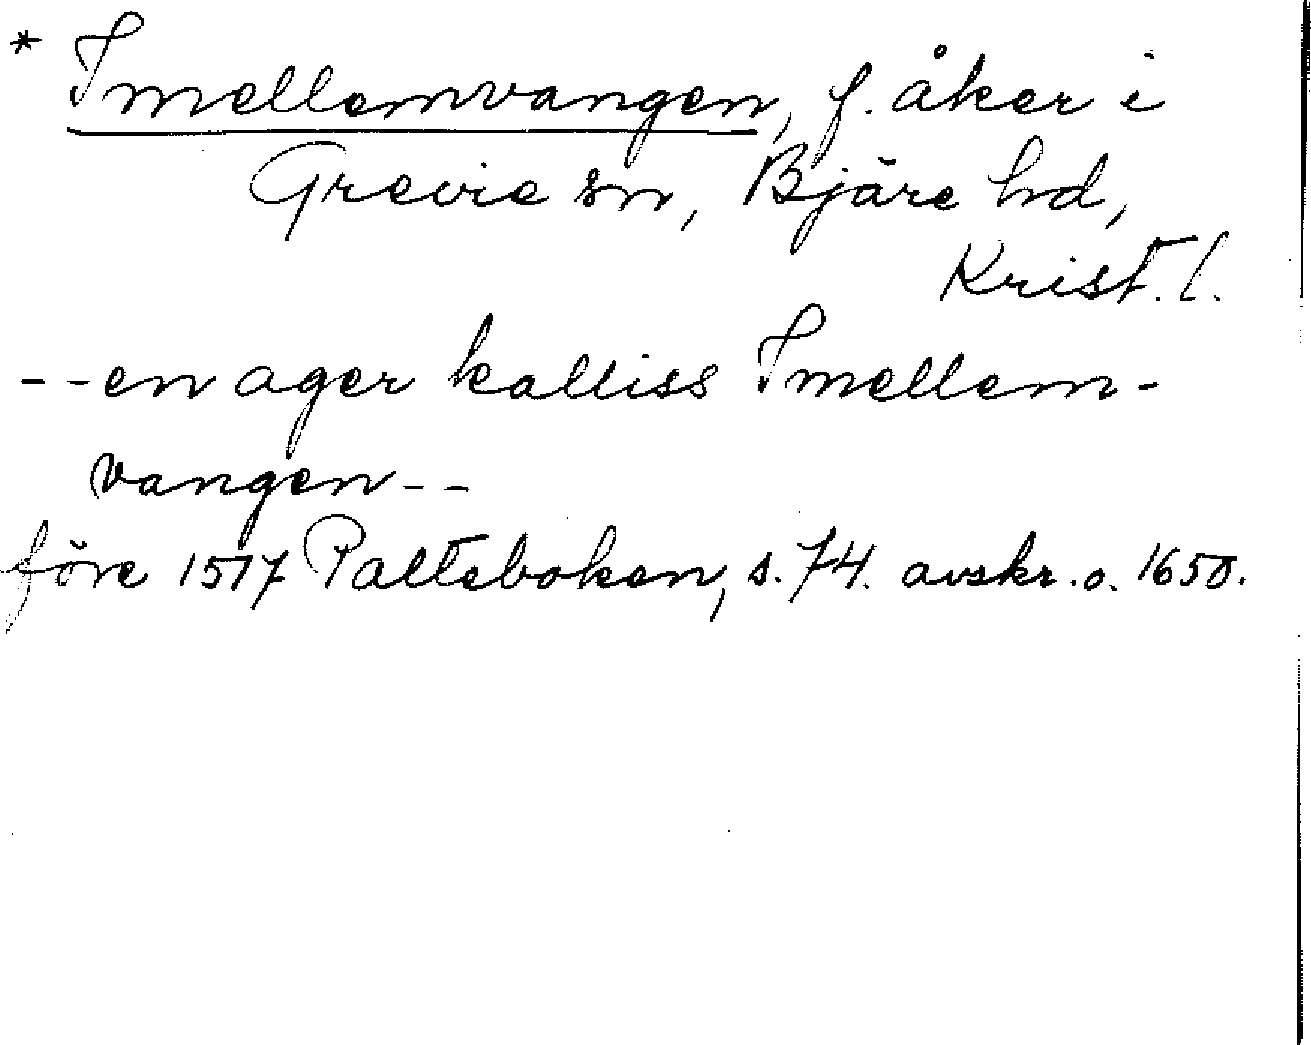 * Imellemvangen, f. åker i
Grevie sn, Bjäre hd,
Krist. l.
-- en ager kalliss Imellem-
vangen --
före 1517 Palteboken, s. 74. avskr. o. 1650.